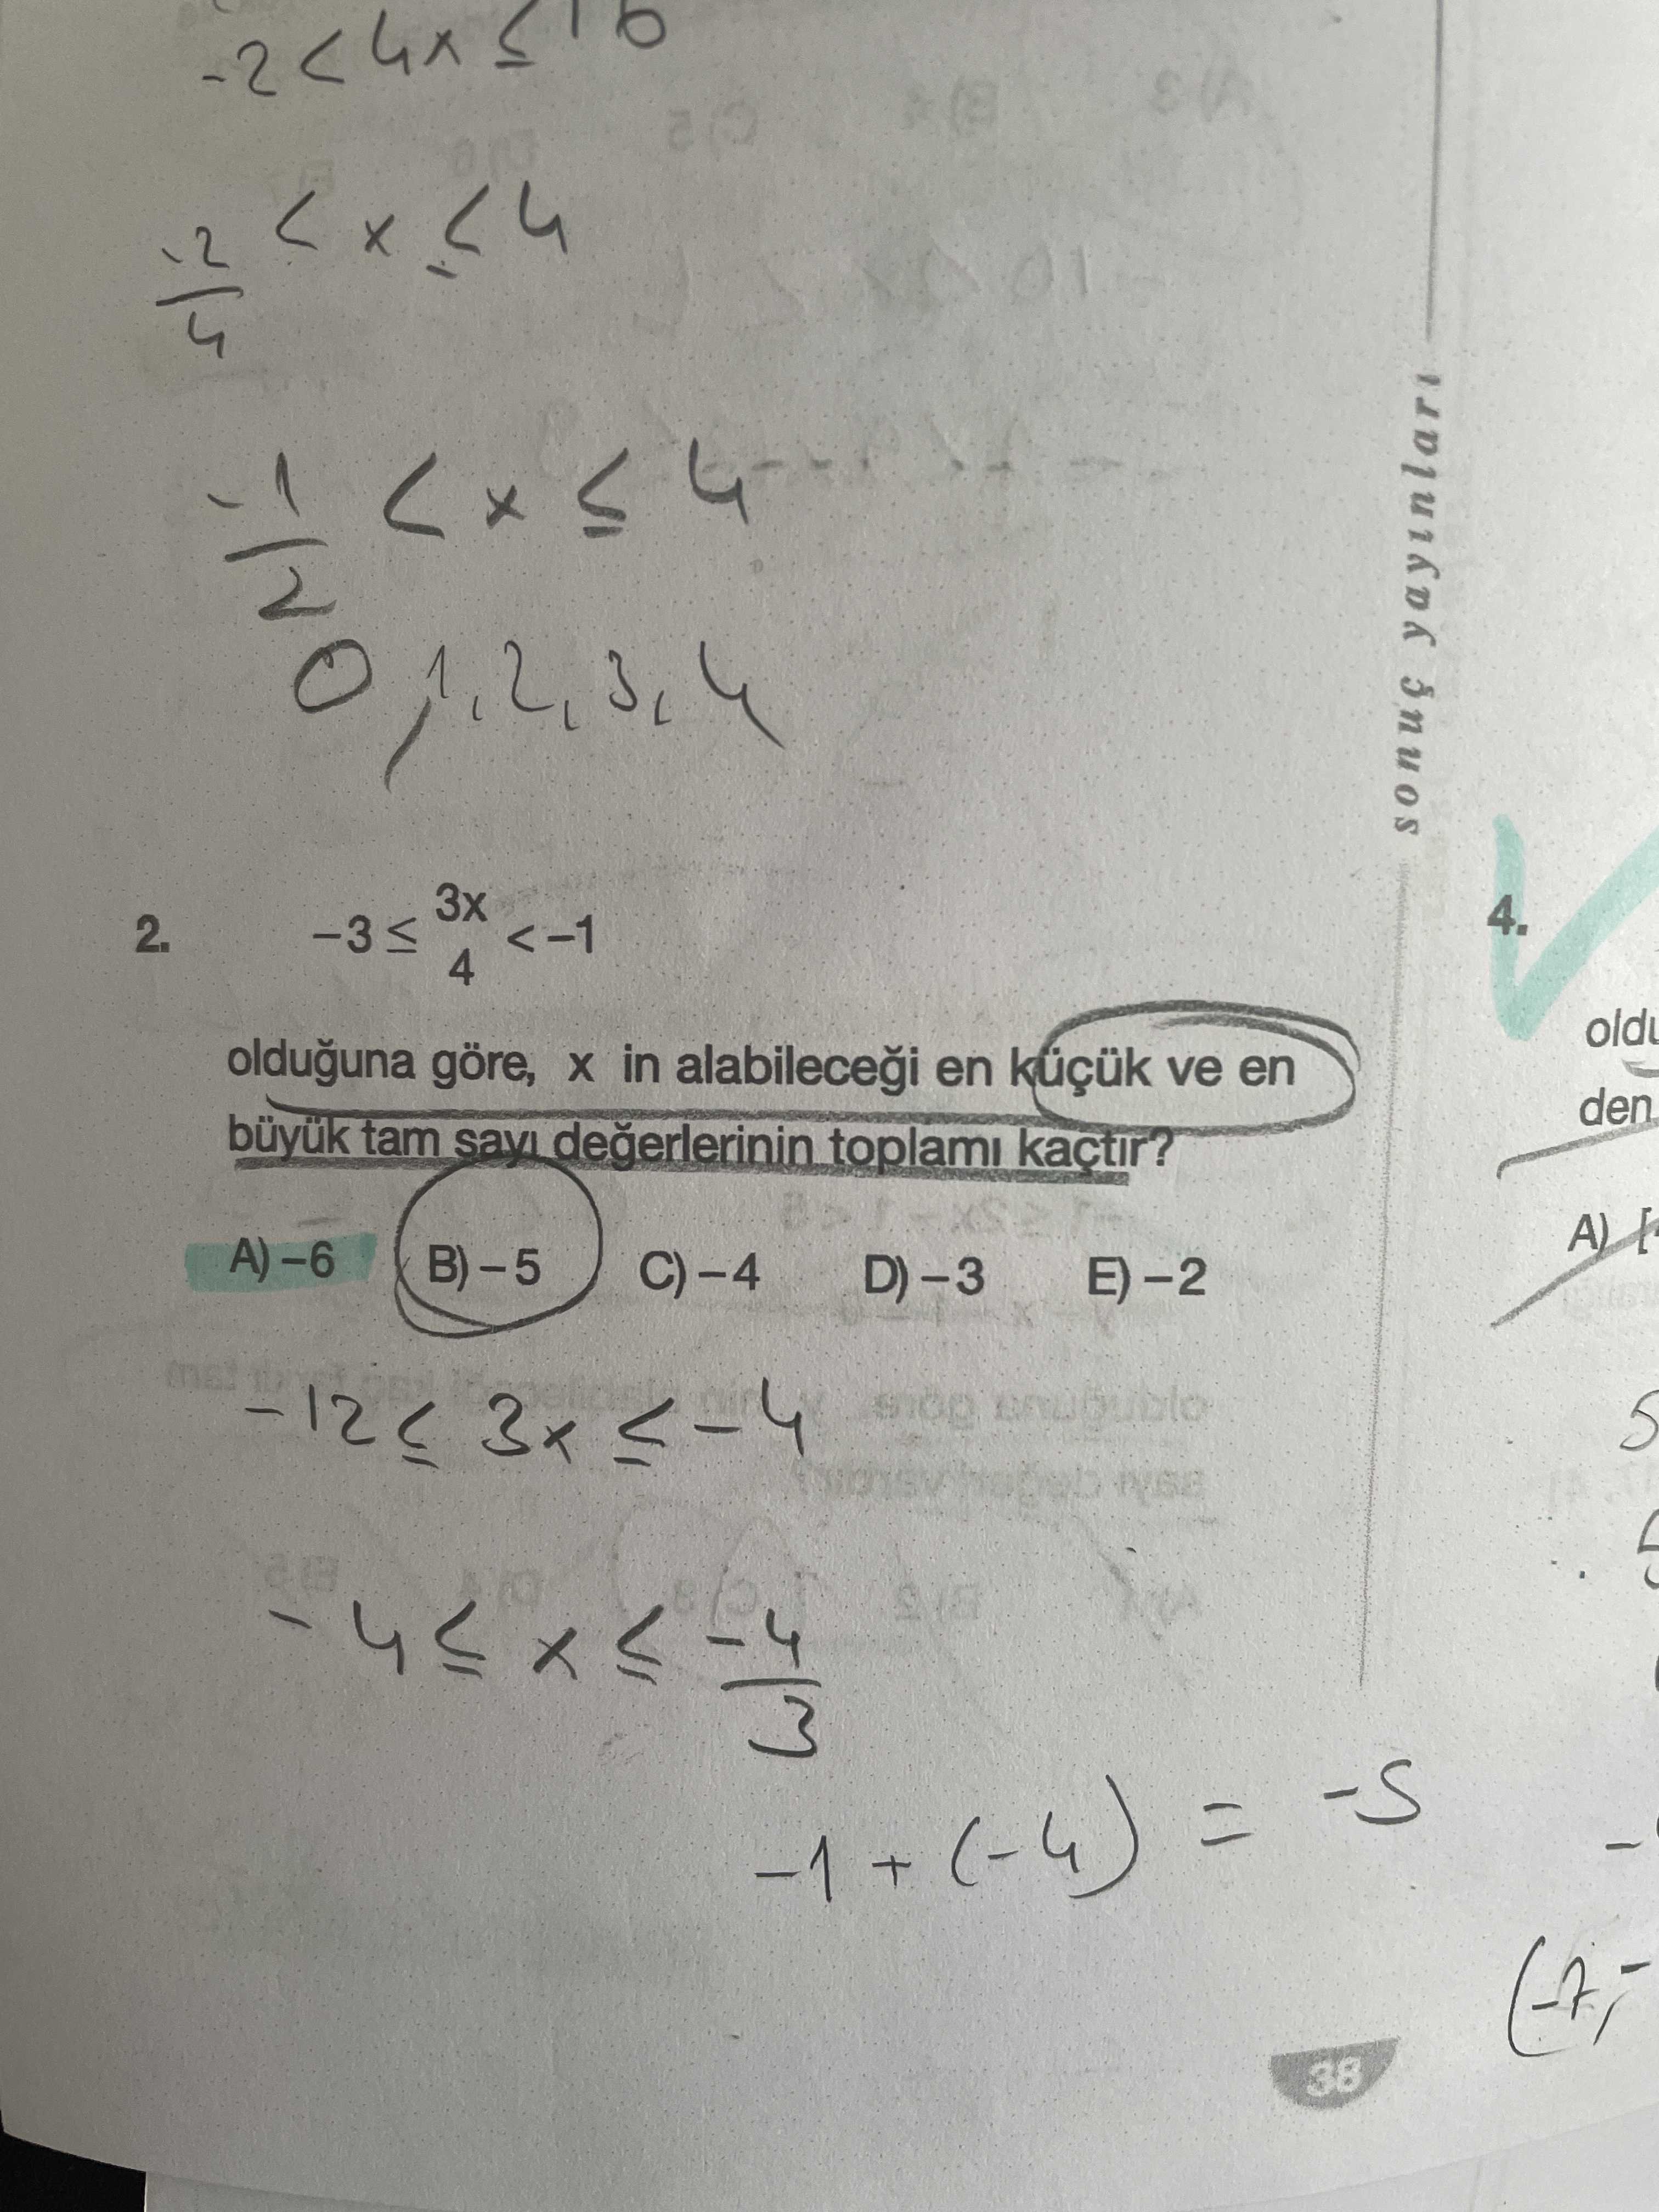 -2 < 4x ≤ 16
-2/4 < x ≤ 4
-1/2 < x ≤ 4
0, 1, 2, 3, 4
sonuç yayınları
2. -3 ≤ 3x/4 < -1
olduğuna göre, x in alabileceği en küçük ve en
büyük tam sayı değerlerinin toplamı kaçtır?
A) -6 B) -5 C) -4 D) -3 E) -2
-12 ≤ 3x ≤ -4
-4 ≤ x ≤ -4/3
-1 + (-4) = -5
4.
den
A) [
(-7, -
38